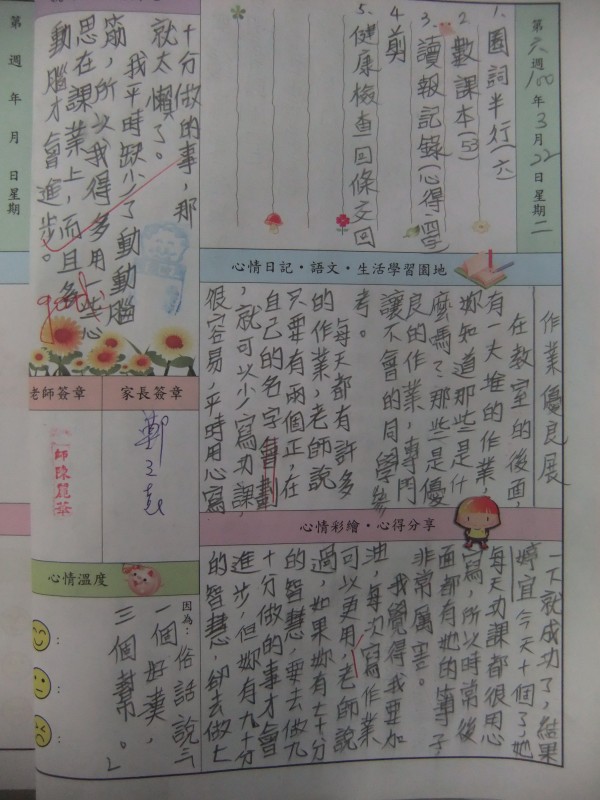 第六週100年3月22日星期二
1.圈詞半行(六)
2.數課本(53)
3.讀報記錄(心得.四字
4剪
5.健康檢查回條交回
心情日記・語文・生活學習園地
作業優良展
在教室的後面，
有一大堆的作業，
妳知道那些是什
麼嗎？那些是優
良的作業，專門
讓不會的同學參
考。
每天都有許多
的作業，老師說
只要有兩個正，在
自己的名字會劃
，就可以少寫功課，
很容易，平時用心寫
心情彩繪・心得分享
一下就成功了，結果
婷宜今天十個了，她
每天功課都很用心
寫，所以時常後
面都有她的簿子
非常厲害。
我覺得我要加
油，每次寫作業
可以更用，老師說
過，如果妳有七十分
的智慧，要去做九
十分做的事才會
進步，但妳有九十分
的智慧，卻去做七
十分做的事，那
就太懶了。
我平時缺少了動動腦
筋，所以我得多用一些心
思在課業上，而且多
動腦才會進步。
good
老師簽章
家長簽章
師陳
心情溫度
因為：
俗話說：「
一個好漢，
三個幫。」
第 週 年 月 日星期